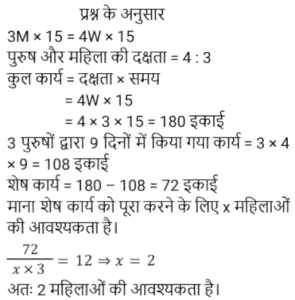 प्रश्न के अनुसार
3M × 15 = 4W × 15
पुरुष और महिला की दक्षता = 4 : 3
कुल कार्य = दक्षता × समय
= 4W × 15
= 4 × 3 × 15 = 180 इकाई
3 पुरुषों द्वारा 9 दिनों में किया गया कार्य = 3 × 4
× 9 = 108 इकाई
शेष कार्य = 180 – 108 = 72 इकाई
माना शेष कार्य को पूरा करने के लिए x महिलाओं
की आवश्यकता है।
72/(x × 3) = 12 ⇒ x = 2
अतः 2 महिलाओं की आवश्यकता है।